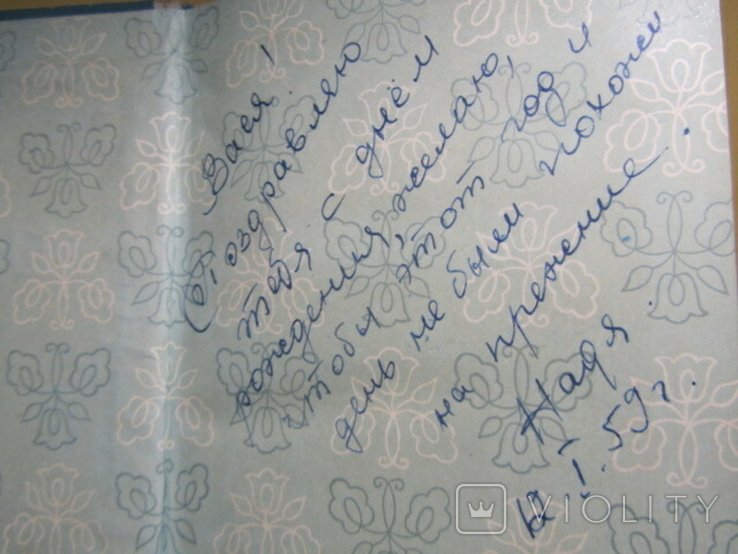 Вася!
Поздравляю
тебя с днём
рождения, желаю,
чтобы этот год и
день не были похожи
на прежние.
Надя.
I.59г.
VIOLITY